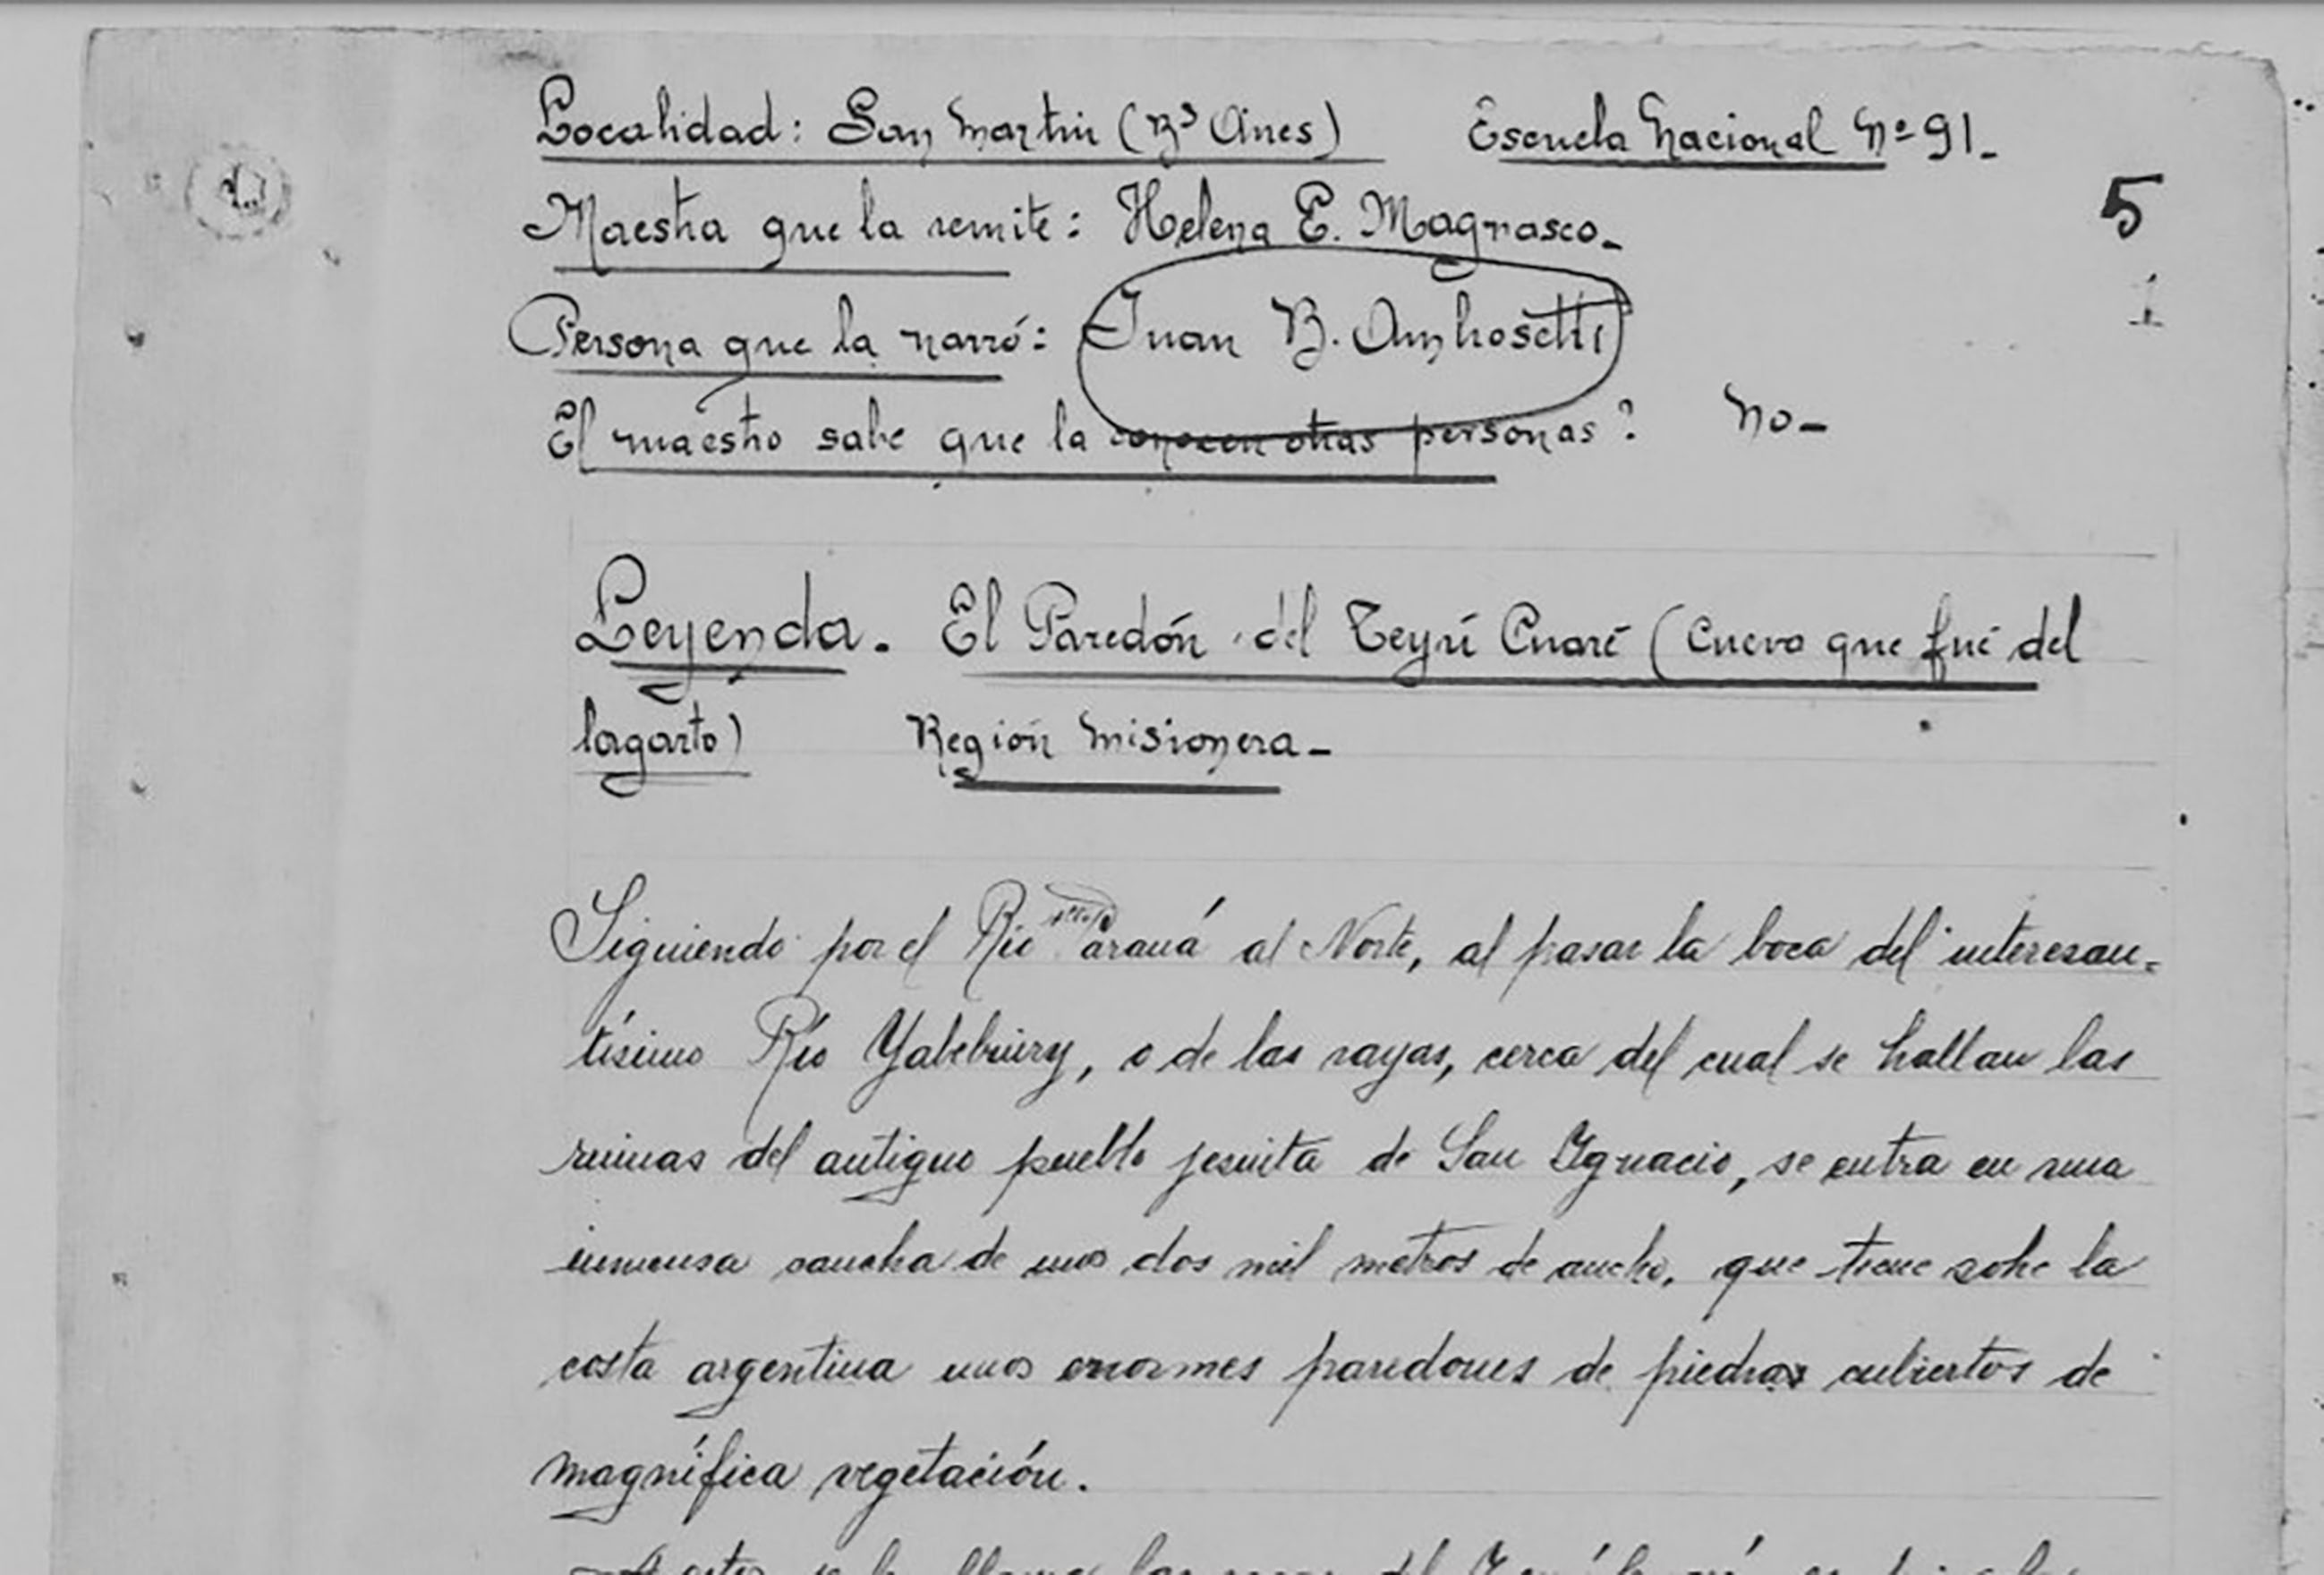 Localidad: San Martin (Bs Aires) Escuela Nacional Nº 91.
5
Maestra que la remite: Helena E. Magnasco.
1
Persona que la narró: Juan B. Ambrosetti
El maestro sabe que la conocen otras personas? No.
Leyenda. El Paredón del Teyú Cuaré (Cueva que fué del
lagarto) Región Misionera.
Siguiendo por el Río Paraná al Norte, al pasar la boca del interesan-
tísimo Río Yabebuiry, o de las rayas, cerca del cual se hallan las
ruinas del antiguo pueblo jesuita de San Ignacio, se entra en una
inmensa cancha de unos dos mil metros de ancho, que tiene sobre la
costa argentina unos enormes paredones de piedras cubiertos de
magnífica vegetación.